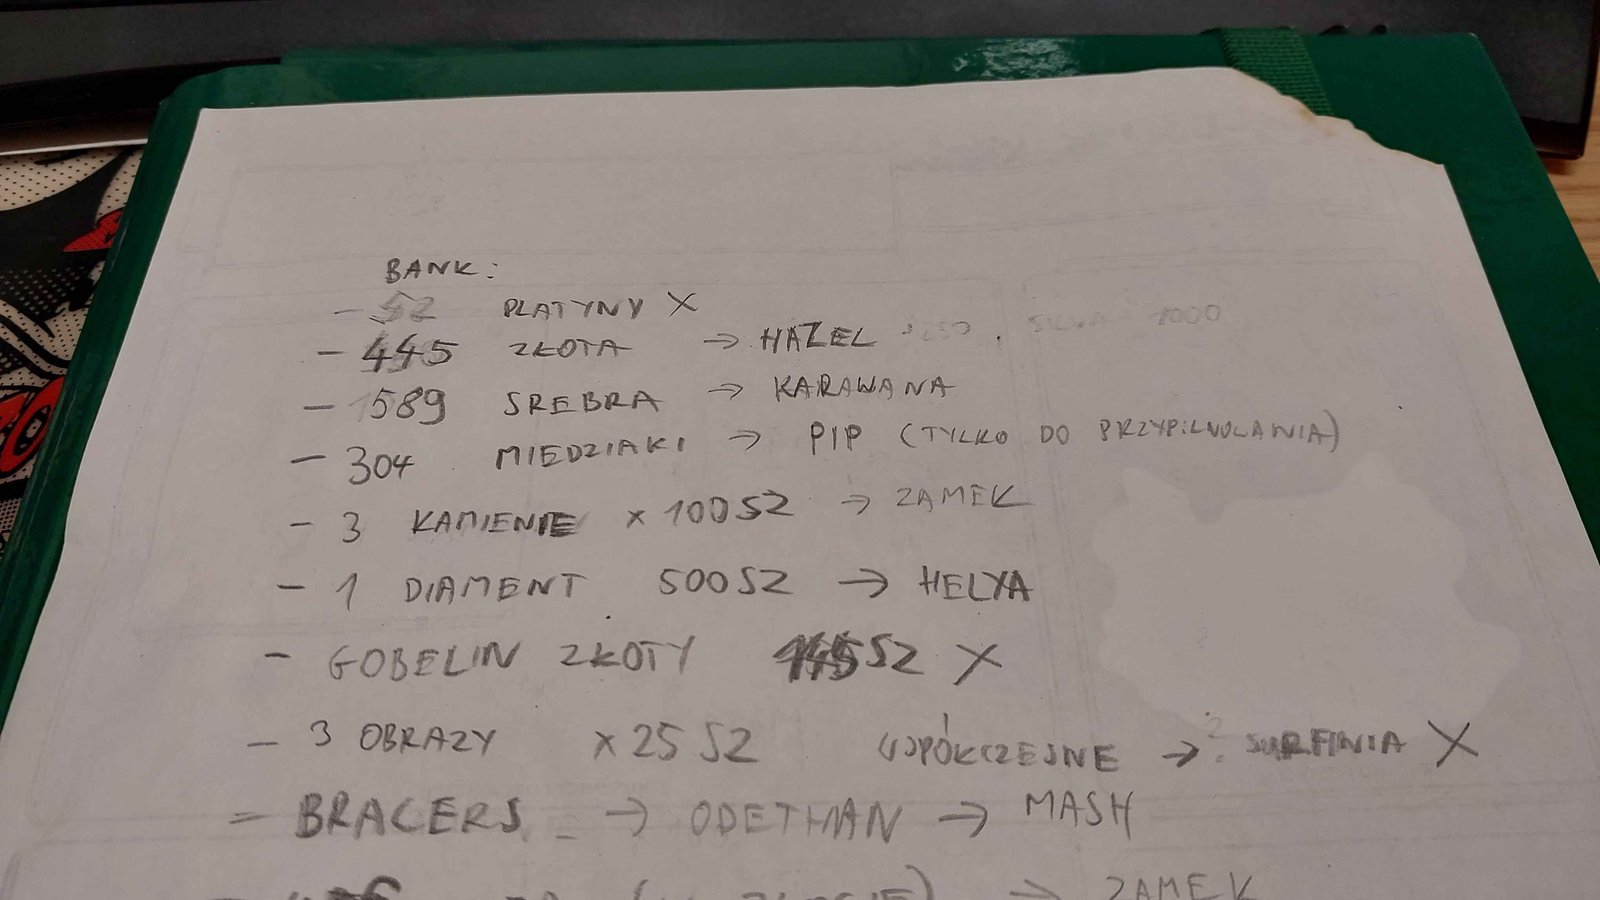 BANK:
- 52 PLATYNY X
- 445 ZŁOTA → HAZEL 1000
- 1589 SREBRA → KARAWANA
- 304 MIEDZIAKI → PIP (TYLKO DO PRZYPILNOWANIA)
- 3 KAMIENIE x 100 SZ → ZAMEK
- 1 DIAMENT 500 SZ → HELYA
- GOBELIN ZŁOTY SZ X
- 3 OBRAZY x 25 SZ WSPÓŁCZESNE → ? SURFINIA X
= BRACERS → ODETHAN → MASH
→ ZAMEK